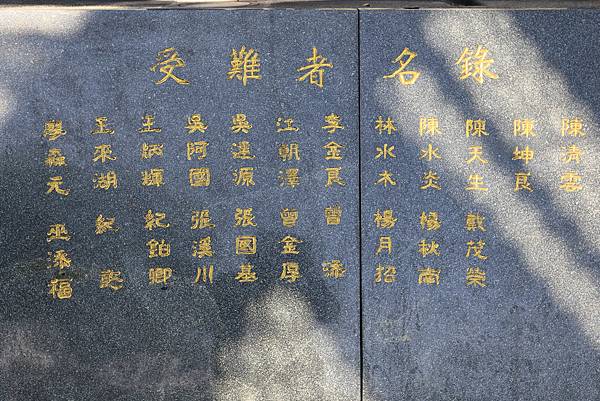 受難者名錄
陳清雲
陳坤良
陳天生 戴茂榮
陳水炎 楊秋南
林水木 楊月招
李金良 曾 添
江朝澤 曾金厚
吳達源 張國基
吳阿國 張溪川
王炳輝 紀鉑卿
王來湖 紀
廖森元 巫添福